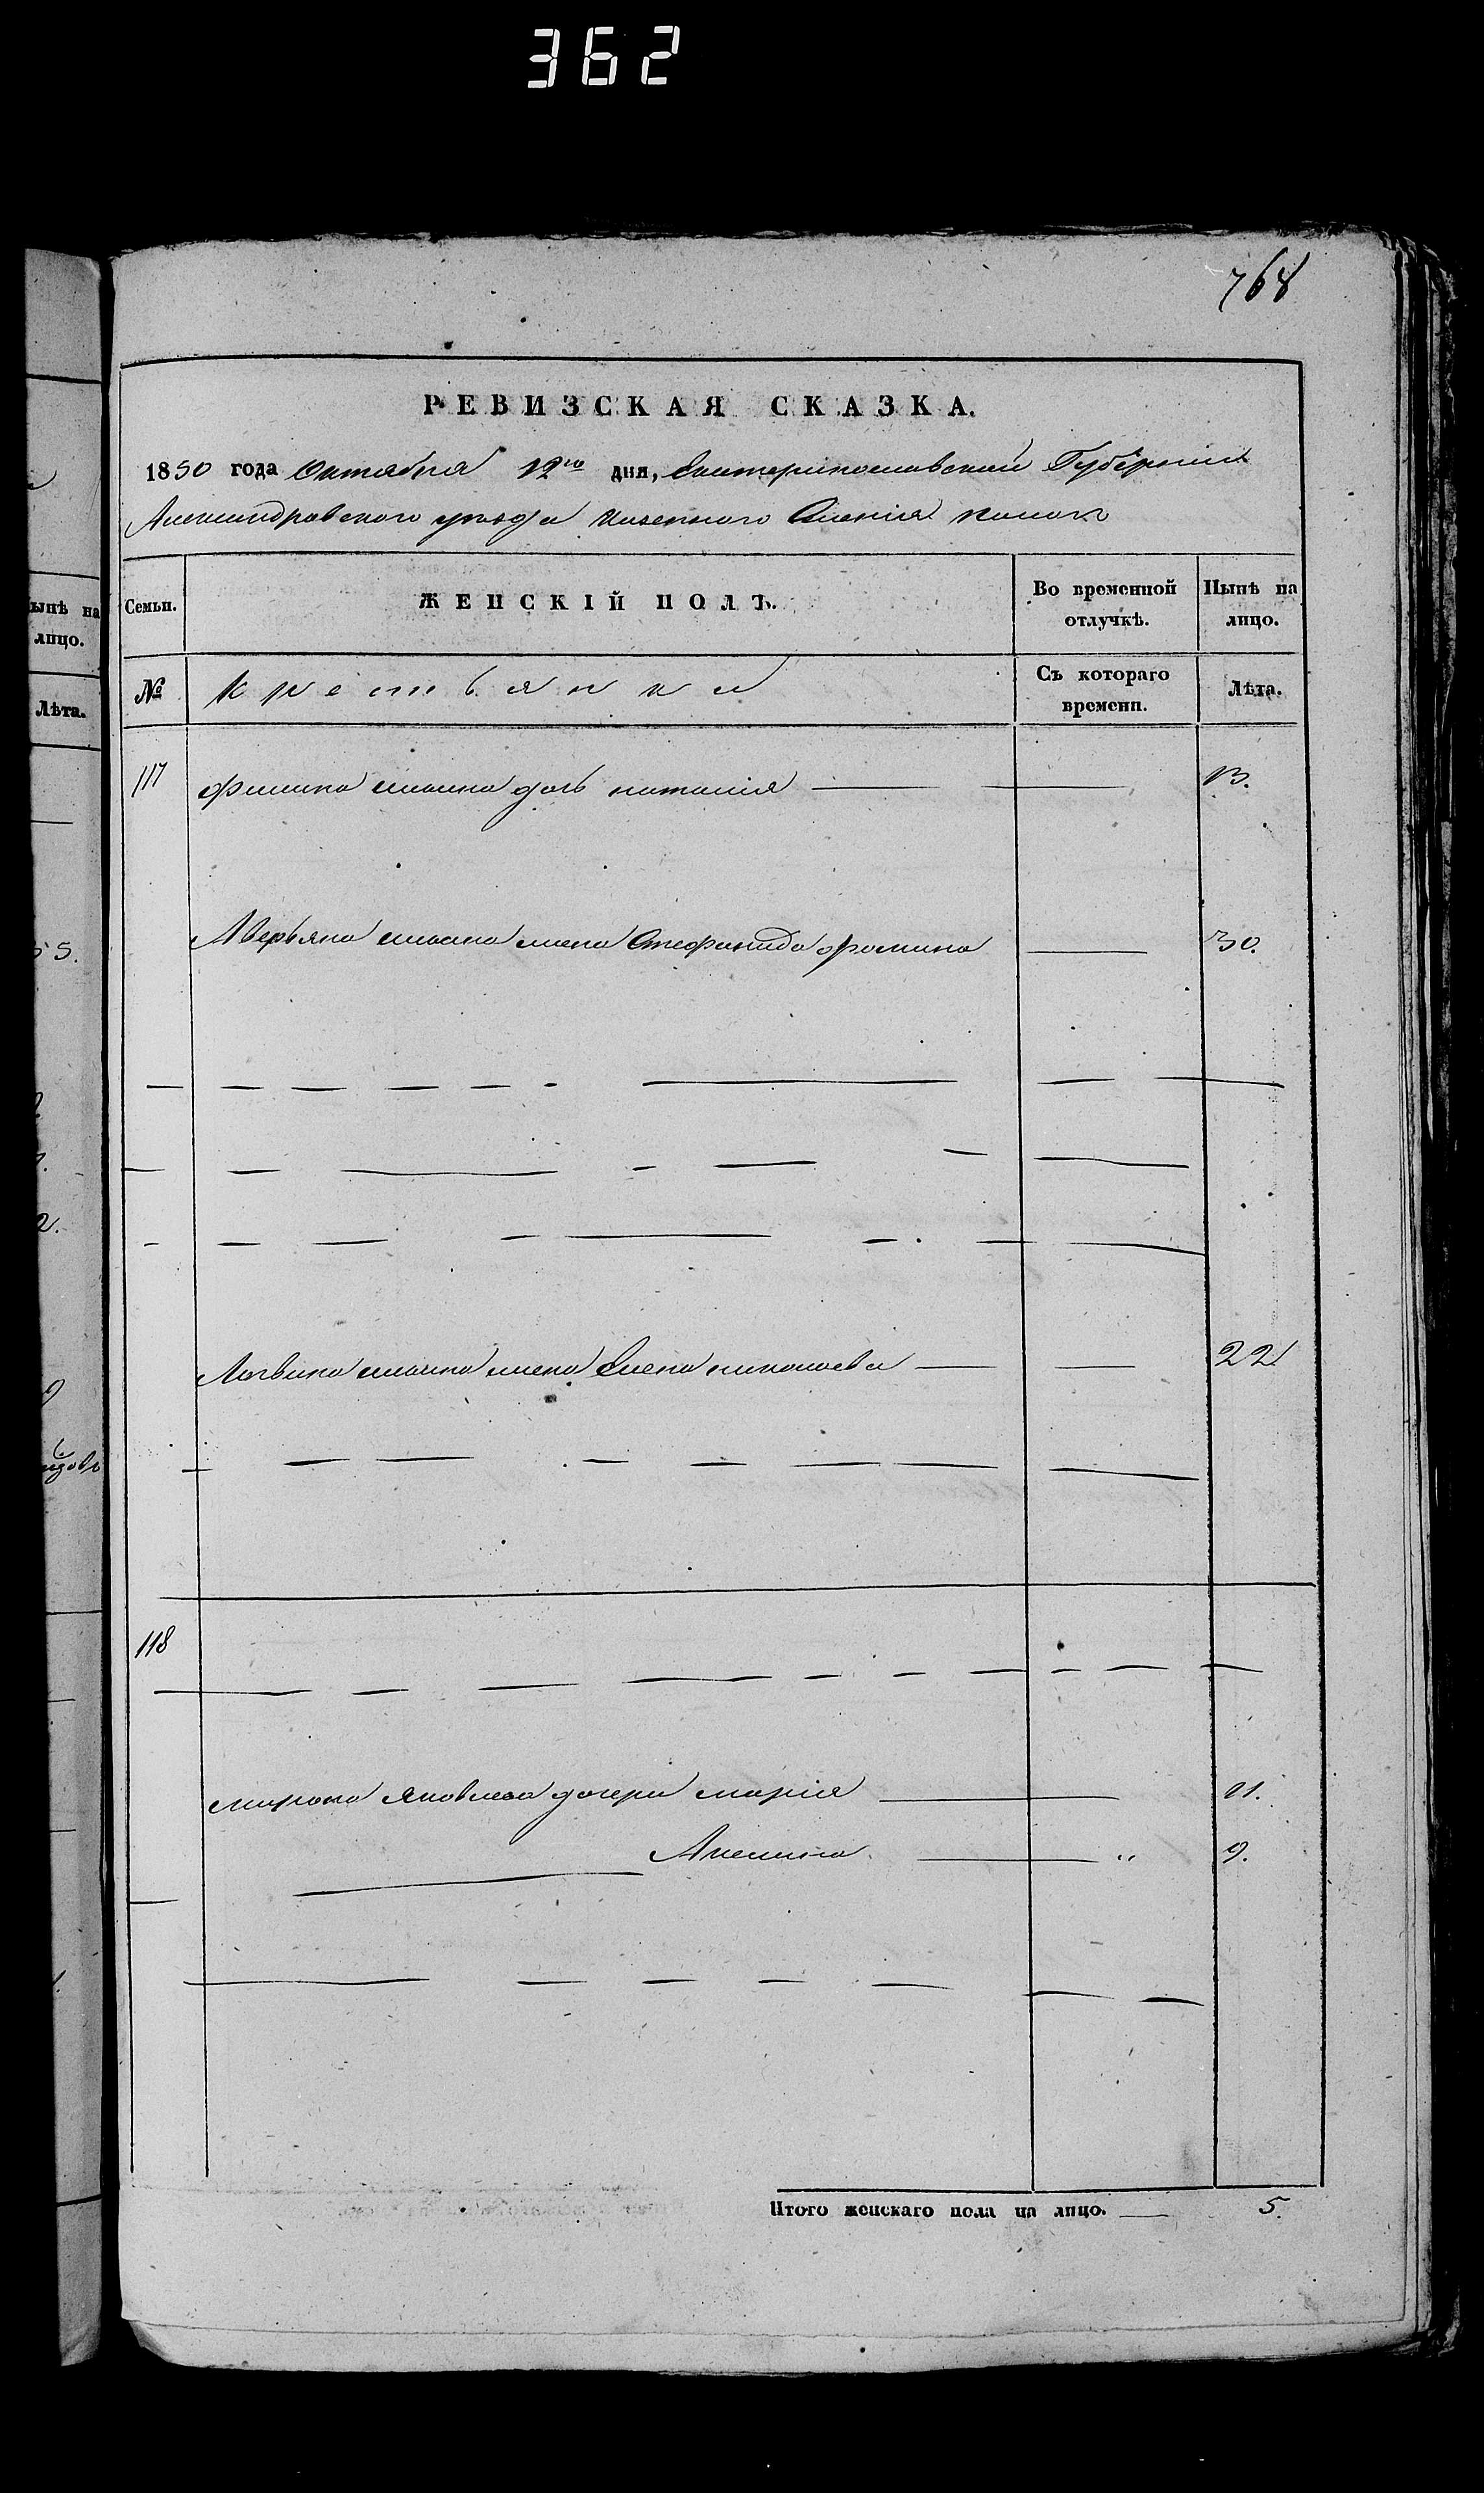 362
768
РЕВИЗСКАЯ СКАЗКА.
1850 года Октября 12го дня, Екатеринославской Губерніи
Александровского уезда Казенного Селенія
Семьи. ЖЕНСКІЙ ПОЛЪ. Во временной отлучкѣ. Нынѣ на лицо.
№ Крестьянки Съ котораго времени. Лѣта.
117 Филипа дочь наталія 13.
Аверьяна жена Стефанида фомина 30.
Логвина жена Елена николаева 22
118
мирона Яковлева дочери марія 11.
Акелина " 9.
Итого женскаго пола на лицо. 5.
ынѣ на
лицо.
Лѣта.